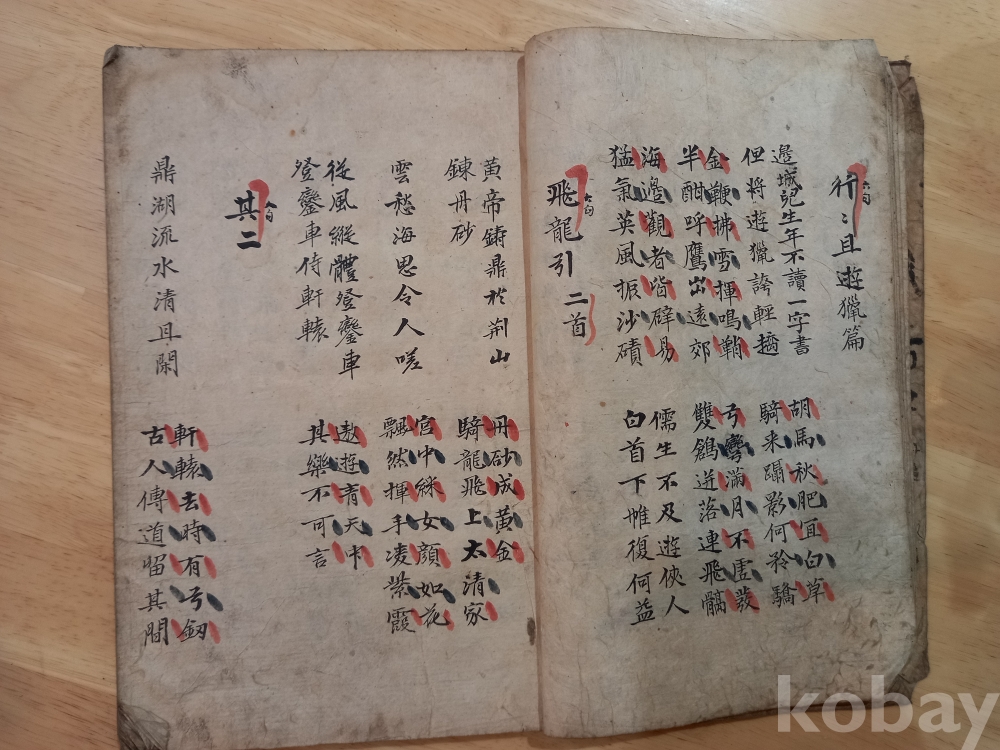 行〻且遊獵篇
邊城兒生年不讀一字書
但將遊獵誇輕趫
胡馬秋肥宜白草
騎来躡影何矜驕
金鞭拂雪揮鳴鞘
半酣呼鷹出遠郊
弓彎滿月不虛發
雙鶬迸落連飛髇
海邊觀者皆辟易
猛氣英風振沙磧
儒生不及遊俠人
白首下帷復何益
飛龍引 二首
黃帝鑄鼎於荊山
鍊丹砂
丹砂成黃金
騎龍飛上太清家
雲愁海思令人嗟
宮中綵女顏如花
飄然揮手凌紫霞
從風縱體登鑾車
登鑾車侍軒轅
遨遊青天中
其樂不可言
其二
鼎湖流水清且閑
軒轅去時有弓劔
古人傳道留其間
kobay